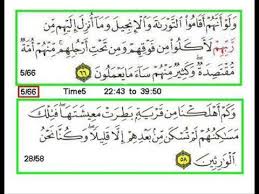 وَلَوْ أَنَّهُمْ أَقَامُوا۟ ٱلتَّوْرَىٰةَ وَٱلْإِنجِيلَ وَمَآ أُنزِلَ إِلَيْهِم مِّن
رَّبِّهِمْ لَأَكَلُوا۟ مِن فَوْقِهِمْ وَمِن تَحْتِ أَرْجُلِهِم مِّنْهُمْ أُمَّةٌ
مُّقْتَصِدَةٌ وَكَثِيرٌ مِّنْهُمْ سَآءَ مَا يَعْمَلُونَ ٦٦
5/66
5/66 Time5 22:43 to 39:50
وَكَمْ أَهْلَكْنَا مِن قَرْيَةٍۭ بَطِرَتْ مَعِيشَتَهَا فَتِلْكَ
مَسَٰكِنُهُمْ لَمْ تُسْكَن مِّنۢ بَعْدِهِمْ إِلَّا قَلِيلًا وَكُنَّا نَحْنُ
ٱلْوَٰرِثِينَ ٥٨
28/58